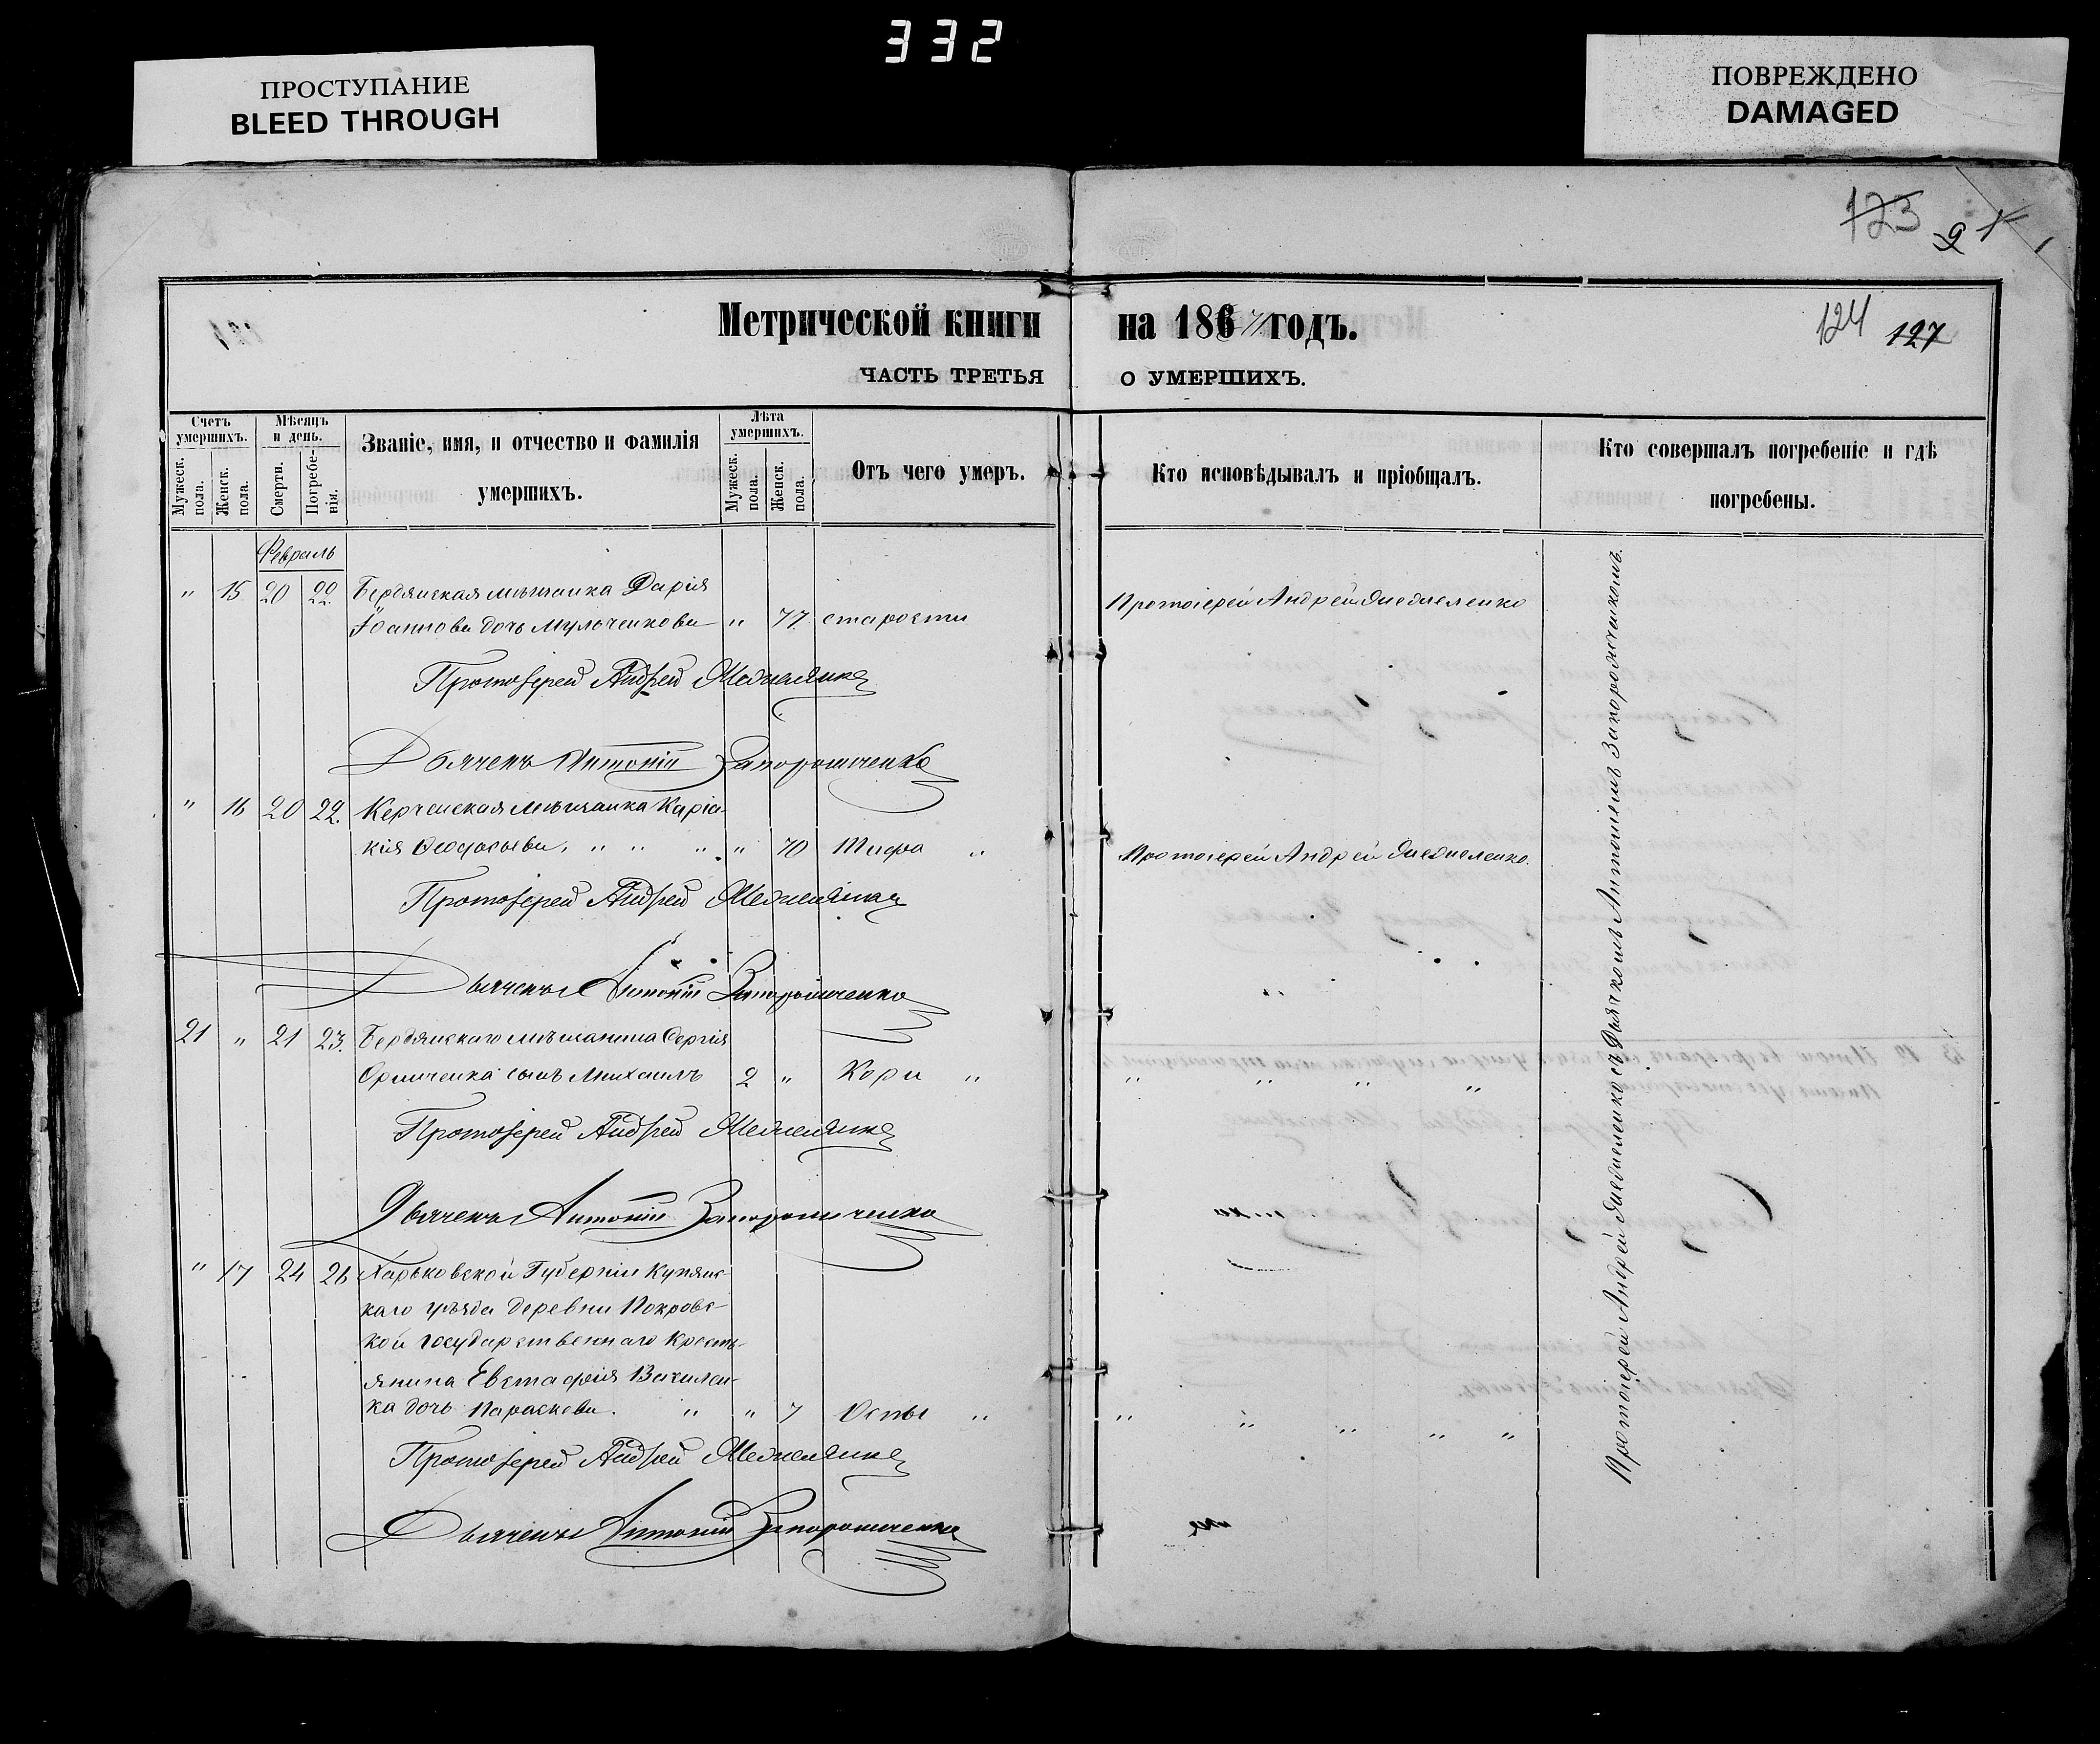 332
ПРОСТУПАНИЕ
BLEED THROUGH
ПОВРЕЖДЕНО
DAMAGED
123
124 127
Метрической книги на 186 годъ.
ЧАСТЬ ТРЕТЬЯ О УМЕРШИХЪ.
Счетъ умершихъ.
Мужеск. пола.
Женск. пола.
Мѣсяцъ и день.
Смерти.
Погребе-
нія.
Званіе, имя, и отчество и Фамилія
умершихъ.
Лѣта умершихъ.
Мужеск. пола.
Женск. пола.
Отъ чего умеръ.
Кто исповѣдывалъ и пріобщалъ.
Кто совершалъ погребеніе и гдѣ
погребены.
Февраль
" 15 20 22. Бердянская мѣщанка Дарія
Іоаннова дочь " 77 старости
Протоіерей Андрей
Протоіерей Андрей
Дьячекъ Антоній Запорожченко
" 16 20 22. Керченская мѣщанка
" " " " 70 Тифа "
Протоіерей Андрей
Протоіерей Андрей
Дьячекъ Антоній Запорожченко
21 " 21 23. Бердянскаго мѣщанина Сергія
сынъ Михаилъ 2 " Кори " " " " "
Протоіерей Андрей
Дьячекъ Антоній Запорожченко
" 17 24 26 Харьковской Губерніи Купянс-
каго уѣзда деревни Покровс-
кой государственнаго Кресть-
янина Евстафія
ка дочь Параскева. " " 7 Оспы " " " " " "
Протоіерей Андрей
Дьячекъ Антоній Запорожченко
Протоіерей Андрей съ Дьячкомъ Антоніемъ Запорожченкомъ.